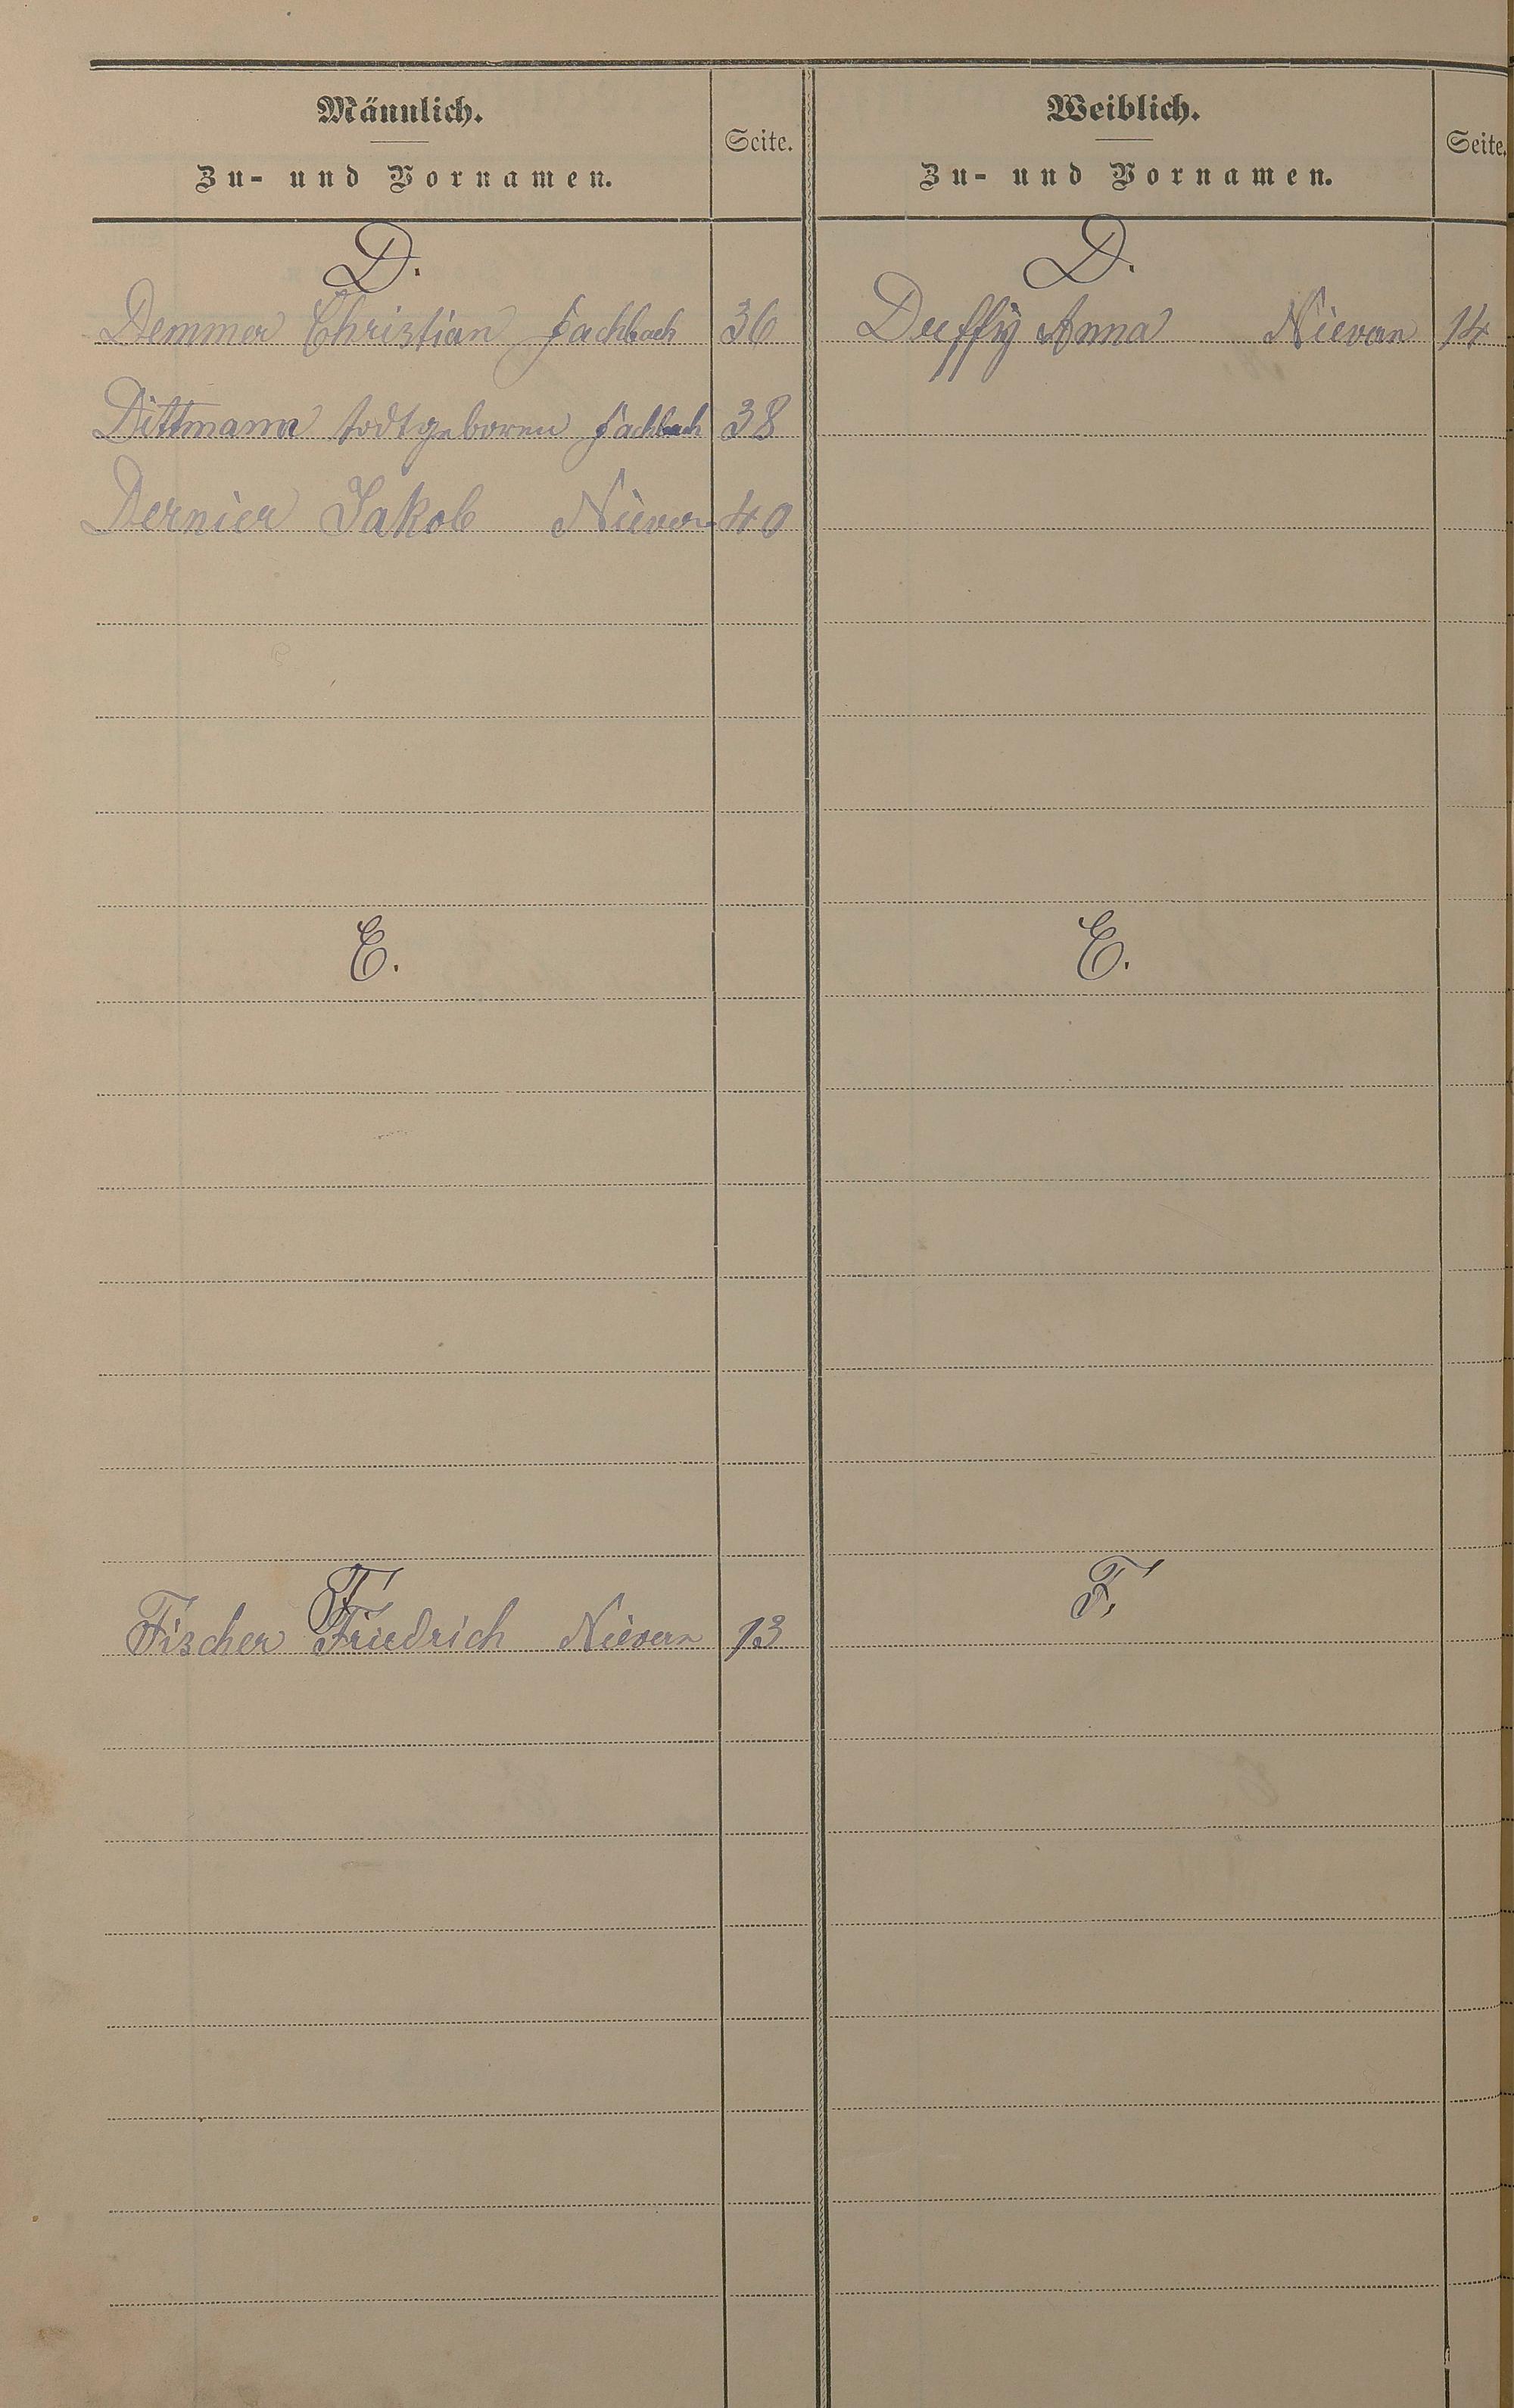 Männlich.
Zu- und Vornamen.
Seite.
Weiblich.
Zu- und Vornamen.
Seite.
D.
Demmer Christian Fachbach 36
Dittmann todtgeboren Fachbach 38
Dernier Jakob Nievern 40
E.
F.
Fischer Friedrich Nievern 13
D.
Duffy Anna Nievern 14
E.
F.